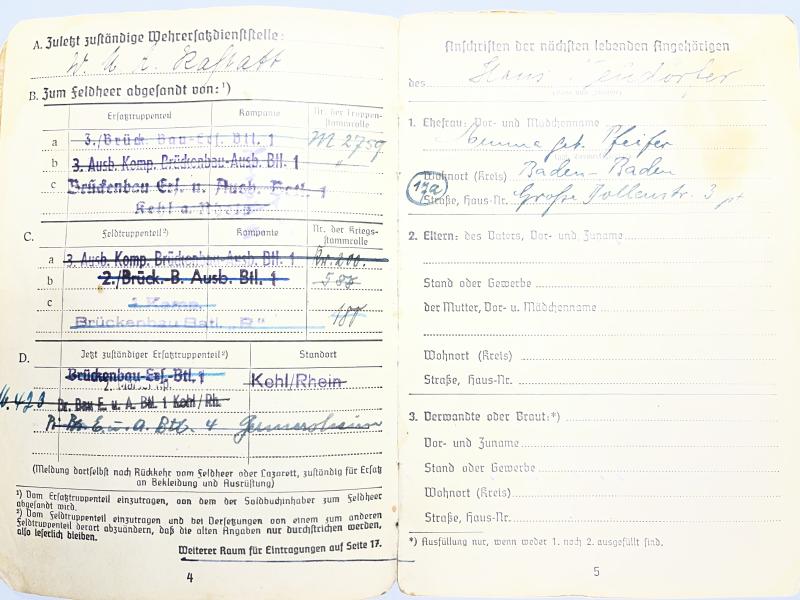 A. Zuletzt zuständige Wehrersatzdienststelle:
W. M. A. Rastatt
B. Zum Feldheer abgesandt von:¹)
Ersatztruppenteil Kompanie Nr. der Truppen-
stammrolle
a 3./Brück. Bau-Ers. Btl. 1 M 2759
b 3. Ausb. Komp. Brückenbau-Ausb. Btl. 1 "
c Brückenbau Ers. u. Ausb. Batl. 1
Kehl a. Rhein
C. Feldtruppenteil²) Kompanie Nr. der Kriegs-
stammrolle
a 3. Ausb. Komp. Brückenbau-Ausb. Btl. 1 Nr. 200.
b 2./Brück.-B. Ausb. Btl. 1
c 1. Komp.
Brückenbau Batl. „B" 188
D. Jetzt zuständiger Ersatztruppenteil²) Standort
Brückenbau-Ers.-Btl. 1 Kehl/Rhein
Br. Bau E. u. A. Btl. 1 Kehl/Rh.
E. u. A. Btl. 4 Germersheim
(Meldung dortselbst nach Rückkehr vom Feldheer oder Lazarett, zuständig für Ersatz
an Bekleidung und Ausrüstung)
¹) Vom Ersatztruppenteil einzutragen, von dem der Soldbuchinhaber zum Feldheer
abgesandt wird.
²) Vom Feldtruppenteil einzutragen und bei Versetzungen von einem zum anderen
Feldtruppenteil derart abzuändern, daß die alten Angaben nur durchstrichen werden,
also leserlich bleiben.
Weiterer Raum für Eintragungen auf Seite 17.
4
Anschriften der nächsten lebenden Angehörigen
des Hans Zendörfer
1. Ehefrau: Vor- und Mädchenname
Emma geb. Pfeifer
Wohnort (Kreis) Baden-Baden
(17a) Straße, Haus-Nr. Große Dollenstr. 3 pt
2. Eltern: des Vaters, Vor- und Zuname
Stand oder Gewerbe
der Mutter, Vor- u. Mädchenname
Wohnort (Kreis)
Straße, Haus-Nr.
3. Verwandte oder Braut:*)
Vor- und Zuname
Stand oder Gewerbe
Wohnort (Kreis)
Straße, Haus-Nr.
*) Ausfüllung nur, wenn weder 1. noch 2. ausgefüllt sind.
5